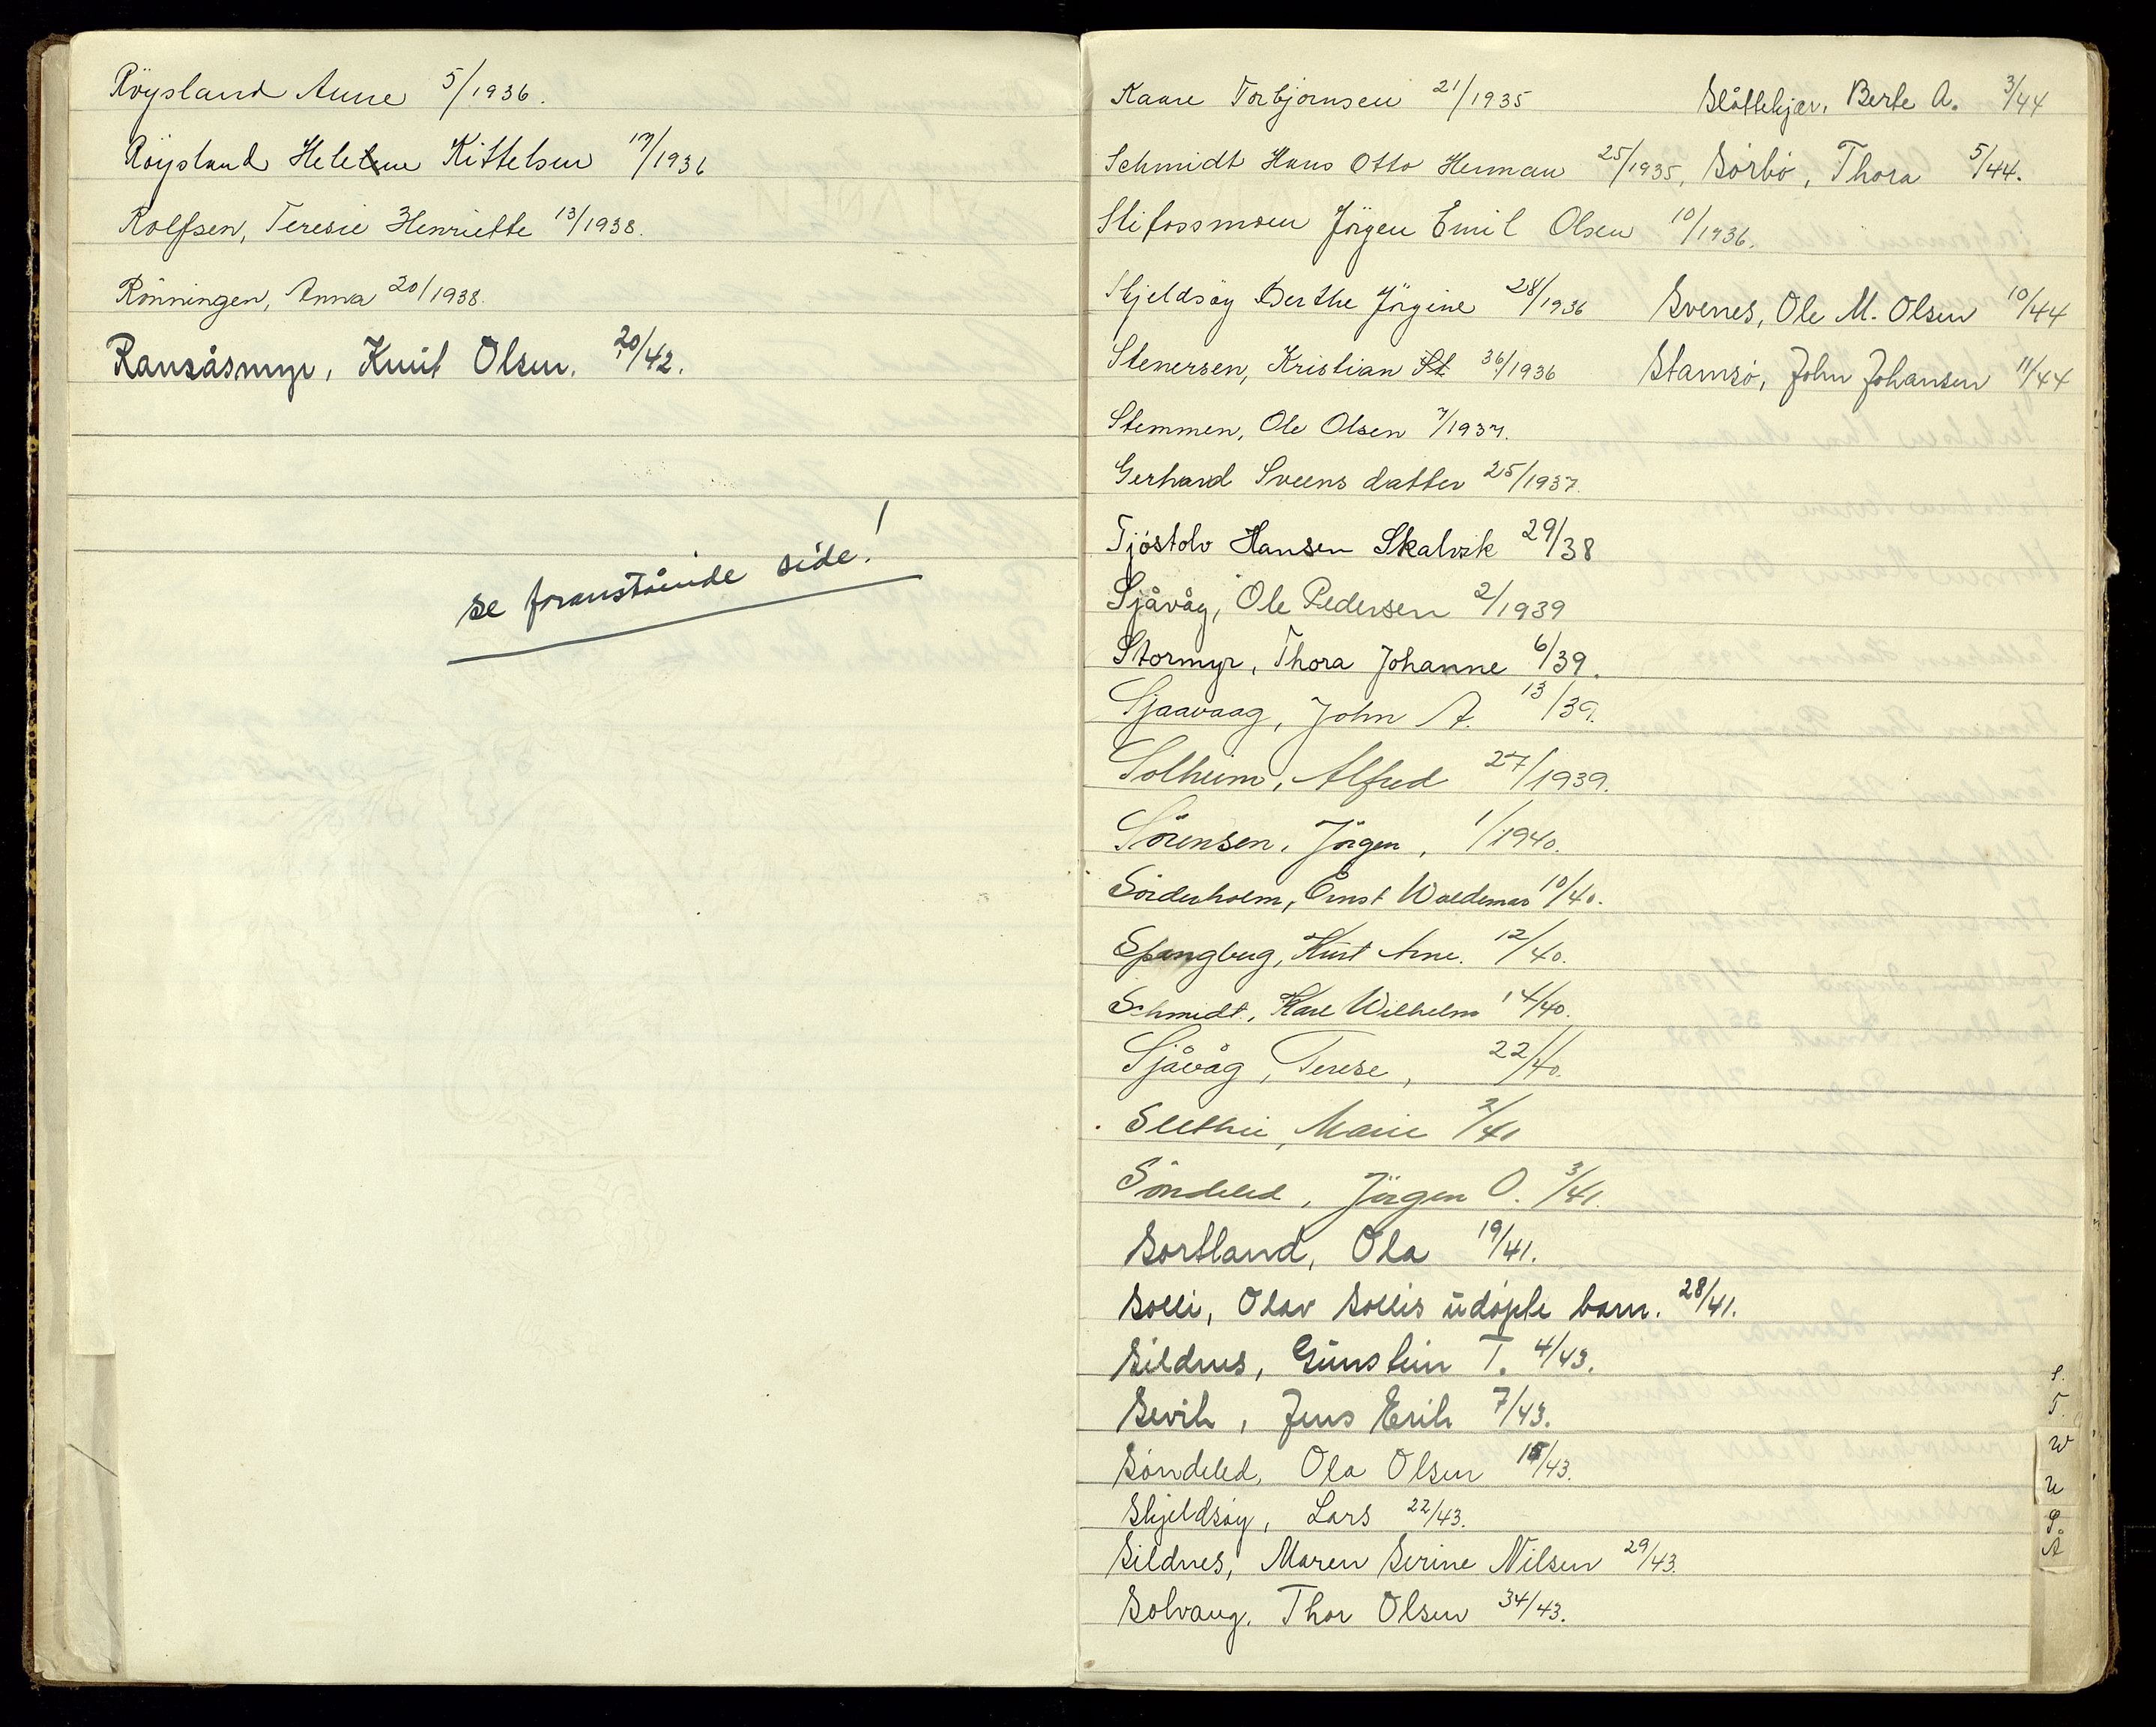 Röysland Anne 5/1936.
Röysland Helene Kittelsen 17/1936
Rolfsen, Teresie Henriette 13/1938.
Rönningen, Anna 20/1938.
Ransåsmyr, Knut Olsen. 20/42.
se foranstående side!
Kaare Torbjørnsen 21/1935
Schmidt Hans Otto Herman 25/1935,
Slifossmoen Jörgen Emil Olsen 10/1936.
Skjeldsøy Berthe Jörgine 28/1936
Stenersen, Kristian St 36/1936
Stemmen, Ole Olsen 7/1937.
Gerhard Sveens datter 25/1937.
Tjöstolv Hansen Skalvik 29/38
Sjåvåg, Ole Pedersen 2/1939
Stormyr, Thora Johanne 6/39.
Sjaavaag, John A. 13/39.
Solheim, Alfred 27/1939.
Sörensen, Jörgen, 1/1940.
Söderholm, Ernst Waldemar 10/40.
Spangberg, Kurt Arne. 12/40.
Schmidt, Karl Wilhelm 14/40.
Sjåvåg, Terese, 22/40.
Marie 2/41
Söndeled, Jörgen O. 3/41.
Sortland, Ola 19/41.
Solli, Olav Sollis udøpte barn. 28/41.
Sildnes, Gunstein T. 4/43.
Sevik, Jens Erik 7/43.
Söndeled, Ola Olsen 15/43.
Skjeldsøy, Lars 22/43.
Sildnes, Maren Serine Nilsen 29/43.
Solvang, Thor Olsen 34/43.
Slåttekjær, Berte A. 3/44
Sörbö, Thora 5/44.
Svenes, Ole M. Olsen 10/44
Stamsö, John Johansen 11/44
S.
T.
W
U
A